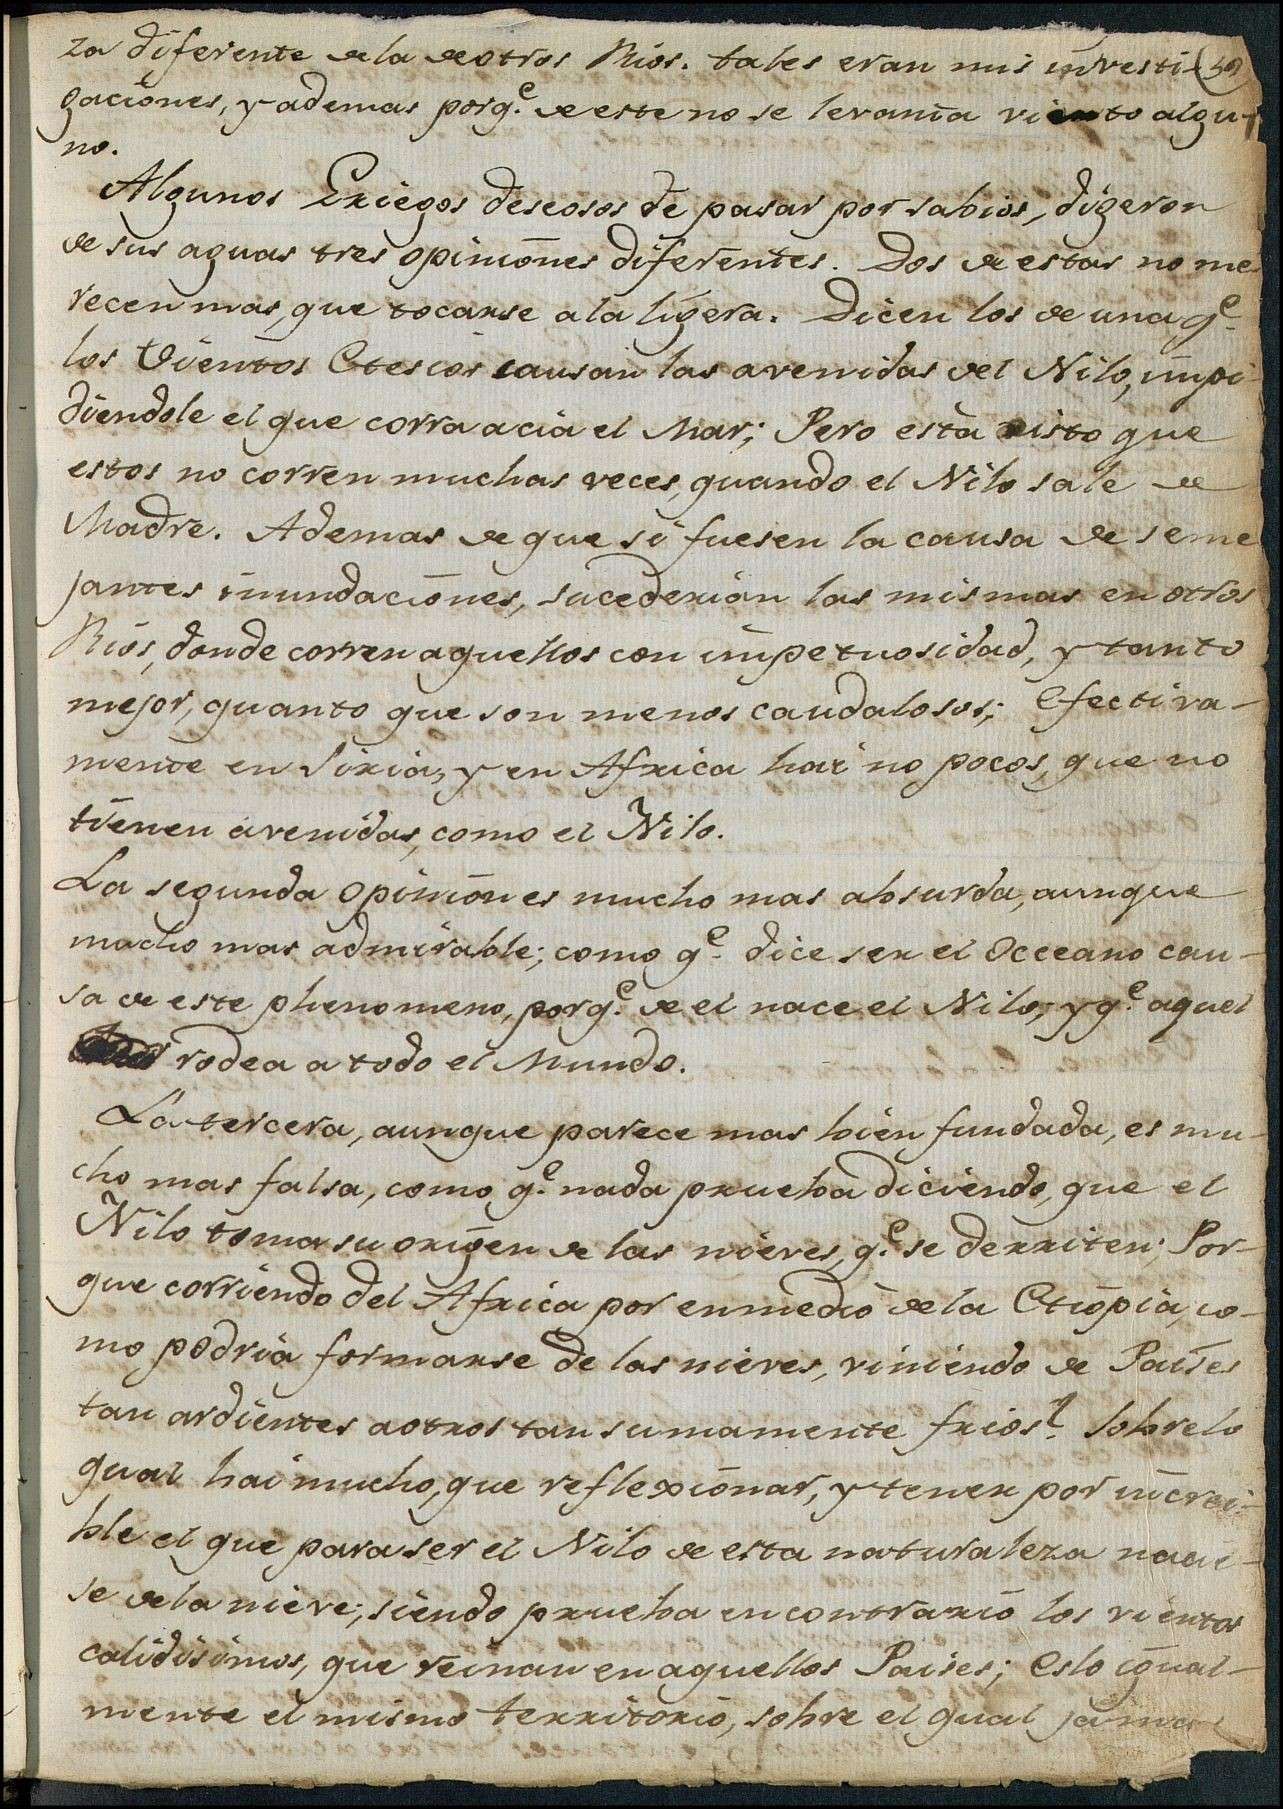 za diferente de la de otros Rios. tales eran mis investi-
gaciones, y ademas porq.e de este no se levanta viento algu-
no.
Algunos Griegos deseosos de pasar por sabios, digeron
de sus aguas tres opiniones diferentes. Dos de estas no me-
recen mas, que tocarse a la ligera. Dicen los de una q.e
los Vientos Etesios causan las avenidas del Nilo, impi-
diendole el que corra acia el Mar; Pero està visto que
estos no corren muchas veces, quando el Nilo sale de
Madre. Ademas de que si fuesen la causa de seme
jantes inundaciones, sucederian las mismas en otros
Rios, donde corren aquellos con impetuosidad, y tanto
mejor, quanto que son menos caudalosos; Efectiva-
mente en Siria, y en Africa hai no pocos, que no
tienen avenidas, como el Nilo.
La segunda opinion es mucho mas absurda, aunque
mucho mas admirable; como q.e dice ser el Occeano cau-
sa de este phenomeno, porq.e de el nace el Nilo, y q.e aquel
rodea a todo el Mundo.
La tercera, aunque parece mas bien fundada, es mu-
cho mas falsa, como q.e nada prueba diciendo, que el
Nilo toma su origen de las nieves, q.e se derriten; Por-
que corriendo del Africa por enmedio de la Etiopia, co-
mo podria formarse de las nieves, viniendo de Paises
tan ardientes a otros tan sumamente frios? Sobre lo
qual hai mucho, que reflexionar, y tener por increi-
ble el que para ser el Nilo de esta naturaleza nacie-
se de la nieve; siendo prueba en contrario los vientos
calidisimos, que reinan en aquellos Paises; Eslo igual-
mente el mismo territorio, sobre el qual jamas